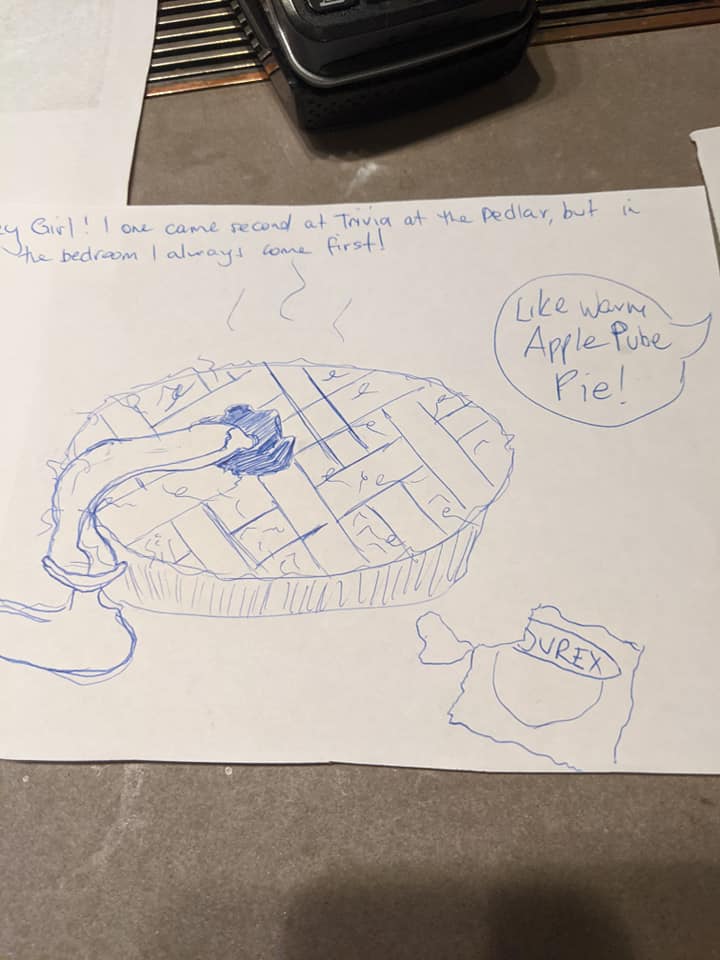 ey Girl! I one came second at Trivia at the Pedlar, but in
the bedroom I always come first!
Like Warm
Apple Pube
Pie!
DUREX